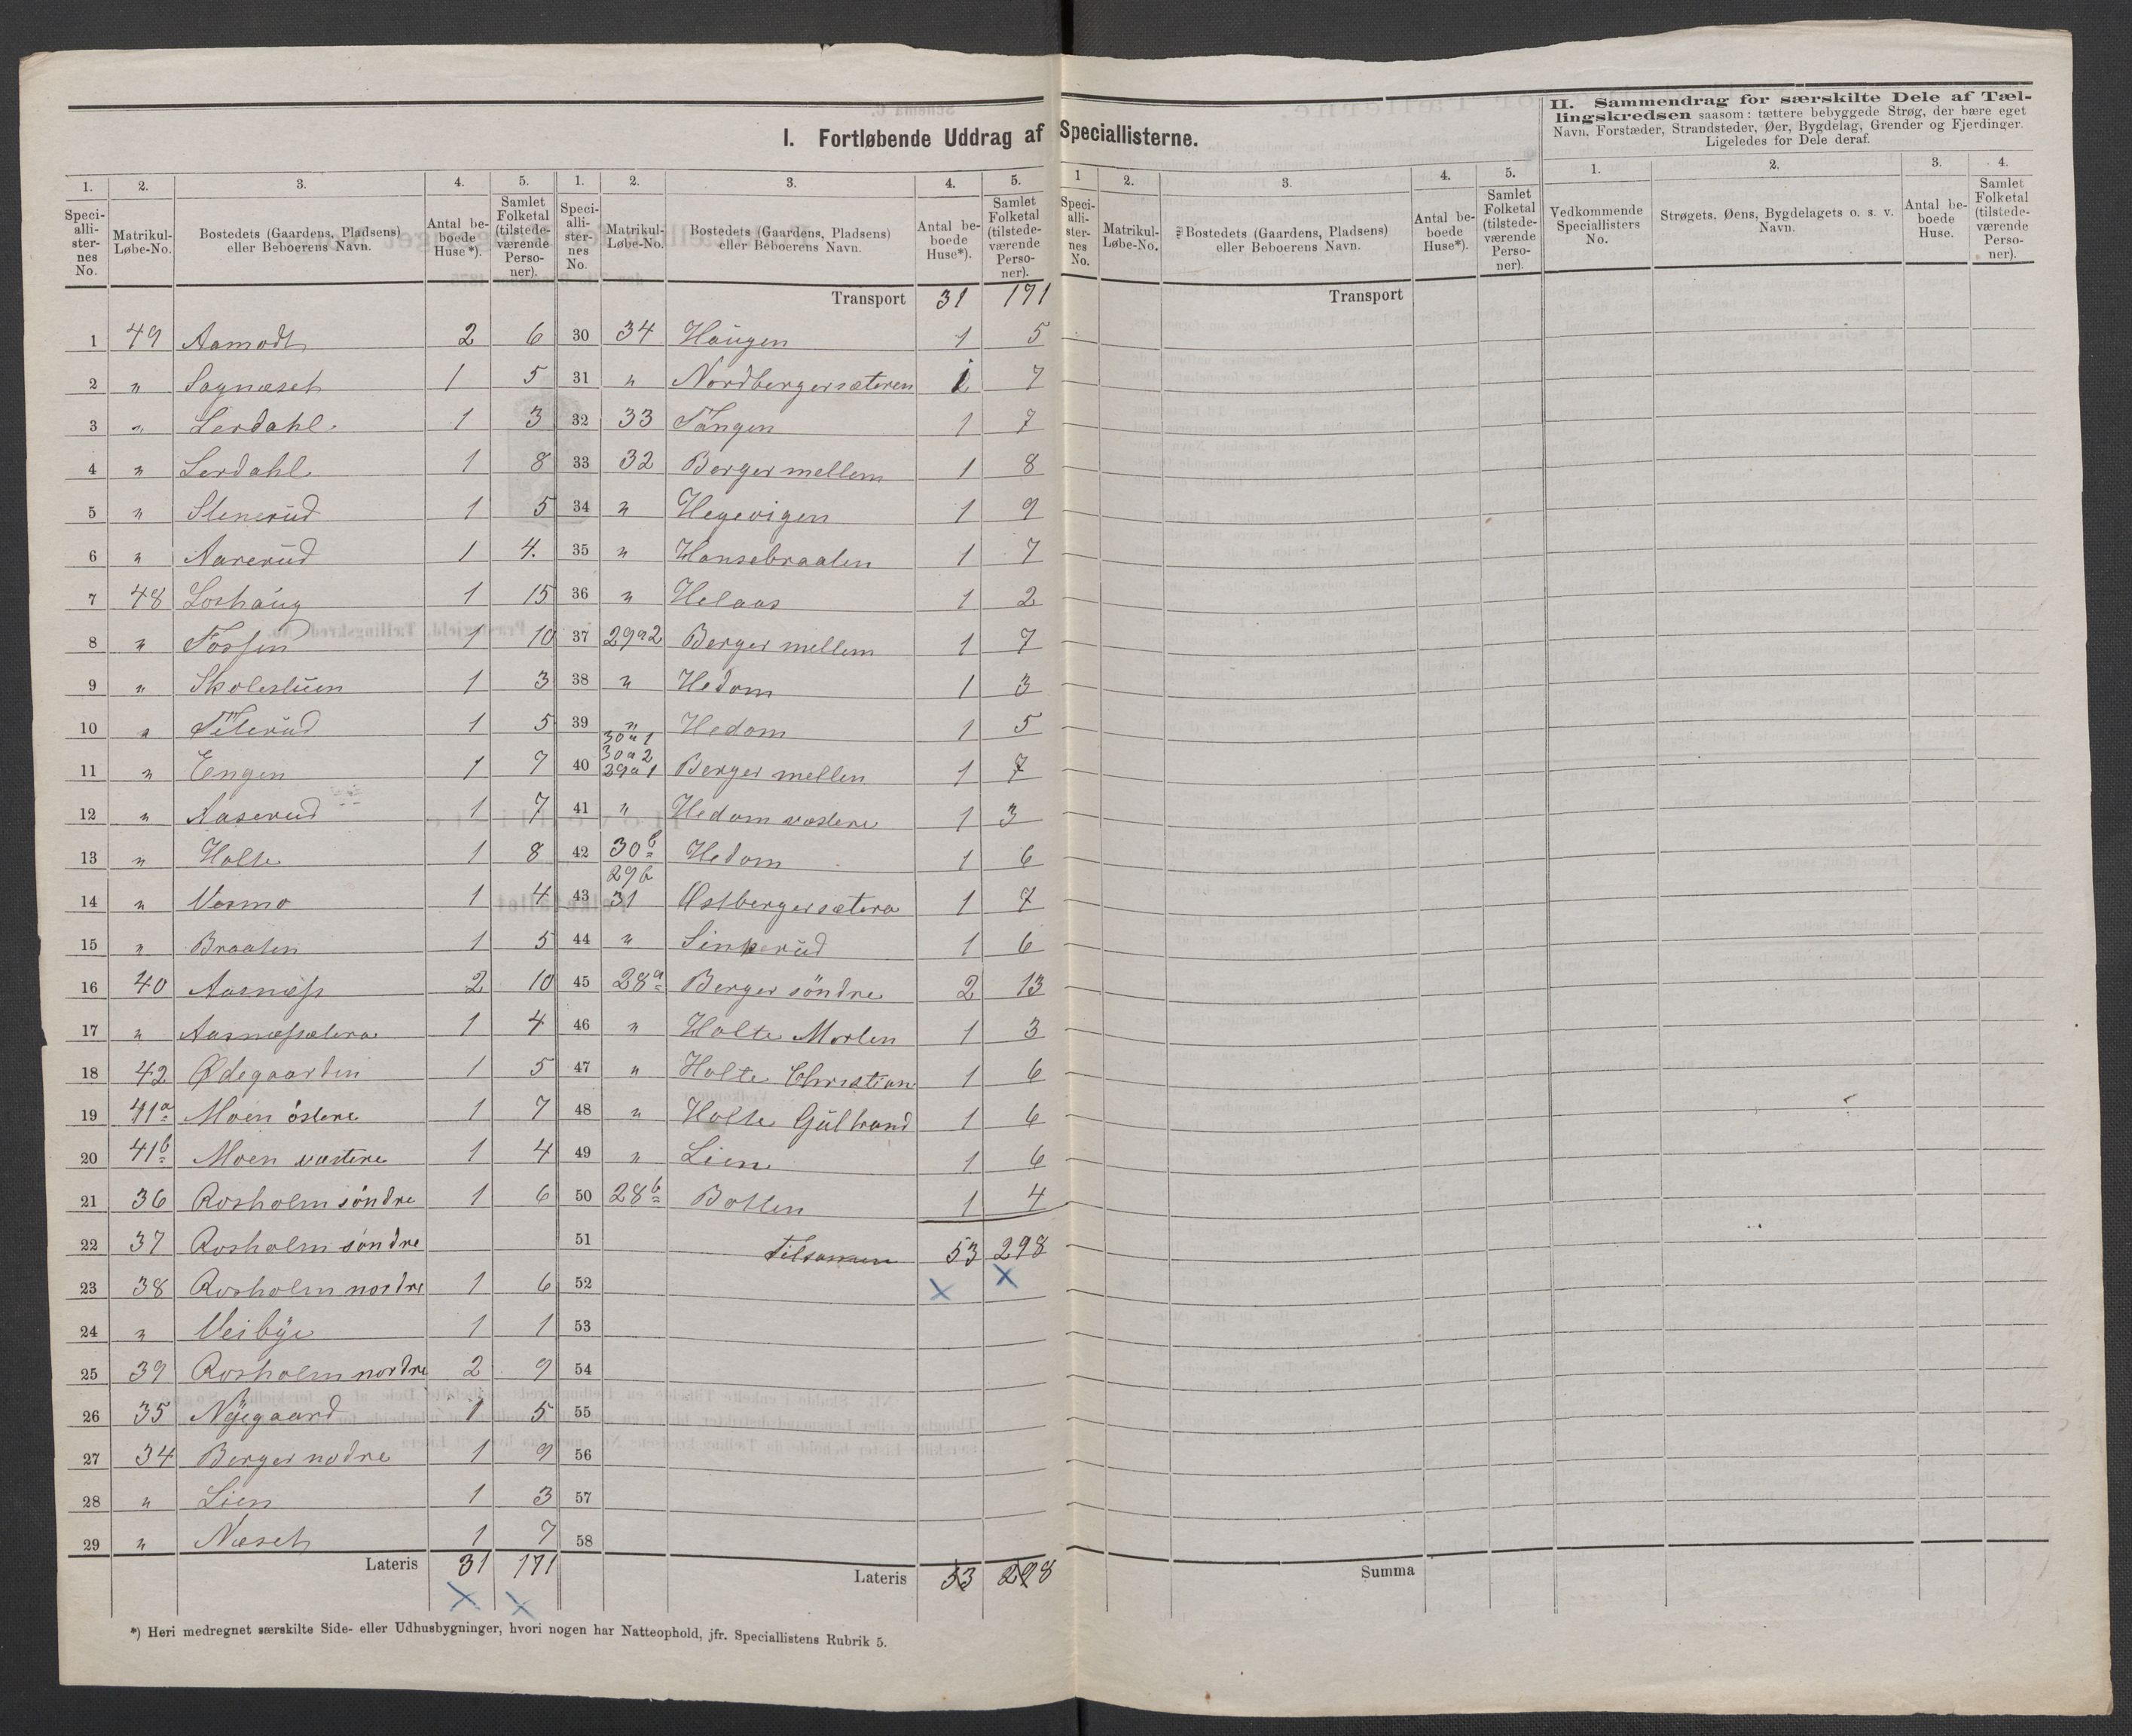 I. Fortløbende Uddrag af Speciallisterne.
1. 2. 3. 4. 5.
Speciallisternes No. Matrikul-Løbe-No. Bostedets (Gaardens, Pladsens) eller Beboerens Navn. Antal beboede Huse*). Samlet Folketal (tilstedeværende Personer).
1 49 Aamodt 2 6
2 " Sagnæset 1 5
3 " Lerdahl 1 3
4 " Lerdahl 1 8
5 " Stenerud 1 5
6 " Aarerud 1 4.
7 48 Loshaug 1 15
8 " Fossen 1 10
9 " Skolestuen 1 3
10 " 1 5
11 " Engen 1 7
12 " Aaserud 1 7
13 " Holte 1 8
14 " Vermo 1 4
15 " Braaten 1 5
16 40 Aasnæss 2 10
17 " Aasnæssætera 1 4
18 42 Ødegaarden 1 5
19 41a Moen östere 1 7
20 41b Moen væstere 1 4
21 36 Rosholm söndre 1 6
22 37 Rosholm söndre
23 38 Rosholm nordre 1 6
24 " Veibye 1 1
25 39 Rosholm nordre 2 9
26 35 Nÿegaard 1 5
27 34 Berger nodre 1 9
28 " Lien 1 3
29 " Næset 1 7
Lateris 31 171
1. 2. 3. 4. 5.
Speciallisternes No. Matrikul-Løbe-No. Bostedets (Gaardens, Pladsens) eller Beboerens Navn. Antal beboede Huse*). Samlet Folketal (tilstedeværende Personer).
Transport 31 171
30 34 Haugen 1 5
31 " Nordbergersæteren 1 7
32 33 Tangen 1 7
33 32 Berger mellem 1 8
34 " Hegevigen 1 9
35 " Hansebraaten 1 7
36 " Helaas 1 2
37 29a2 Berger mellem 1 7
38 " Hedom 1 3
39 " Hedom 1 5
30a1
30a2
40 29a1 Berger mellen 1 7
41 " Hedom væstere 1 3
42 30b Hedom 1 6
29b
43 31 Østbergersætera 1 7
44 " Sinkerud 1 6
45 28a Berger söndre 2 13
46 " Holte Morten 1 3
47 " Holte Christian 1 6
48 " Holte Gulbrand 1 6
49 " Lien 1 6
50 28b Botten 1 4
51 Tilsammen 53 298
52
53
54
55
56
57
58
Lateris 53 298
*) Heri medregnet særskilte Side- eller Udhusbygninger, hvori nogen har Natteophold, jfr. Speciallistens Rubrik 5.
1 2. 3. 4. 5.
Speciallisternes No. Matrikul-Løbe-No. Bostedets (Gaardens, Pladsens) eller Beboerens Navn. Antal beboede Huse*). Samlet Folketal (tilstedeværende Personer).
Transport
Summa
II. Sammendrag for særskilte Dele af Tællingskredsen saasom: tættere bebyggede Strøg, der bære eget
Navn, Forstæder, Strandsteder, Øer, Bygdelag, Grender og Fjerdinger.
Ligeledes for Dele deraf.
1. 2. 3. 4.
Vedkommende Speciallisters No. Strøgets, Øens, Bygdelagets o. s. v. Navn. Antal beboede Huse. Samlet Folketal (tilstedeværende Personer).